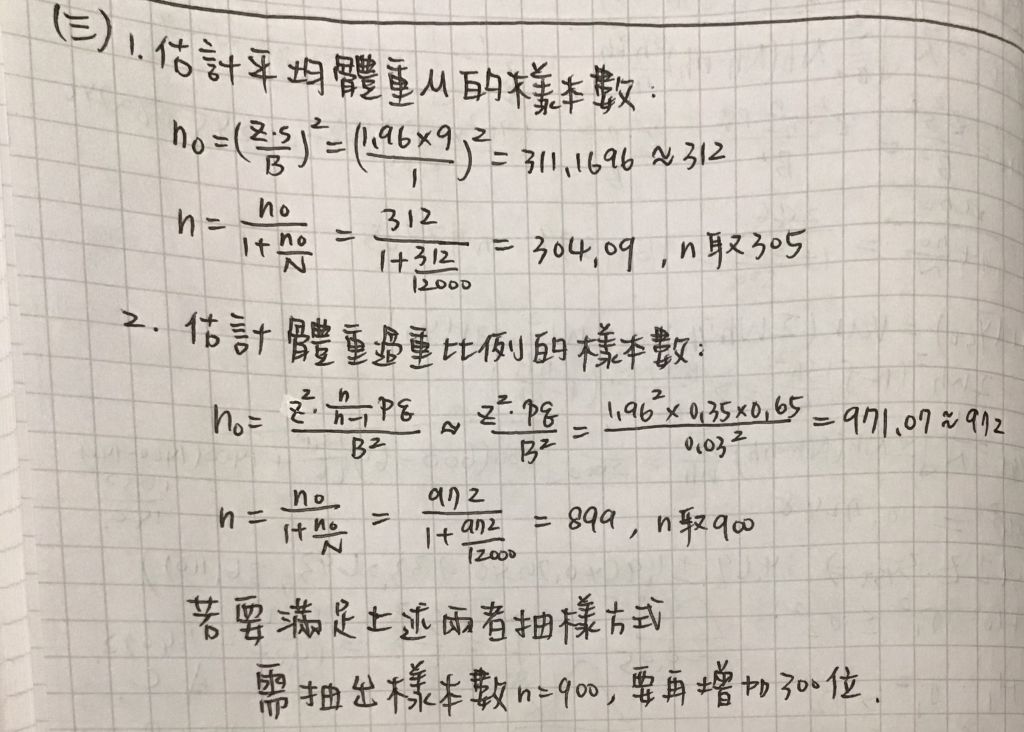 (三) 1. 估計平均體重μ的樣本數:
n₀ = (Z·S/B)² = (1.96×9/1)² = 311.1696 ≈ 312
n = n₀/(1+n₀/N) = 312/(1+312/12000) = 304.09, n取305
2. 估計體重過重比例的樣本數:
n₀ = (Z²·n/(n-1) pq)/B² ≈ Z²·pq/B² = 1.96²×0.35×0.65/0.03² = 971.07 ≈ 972
n = n₀/(1+n₀/N) = 972/(1+972/12000) = 899, n取900
若要滿足上述兩者抽樣方式
需抽出樣本數n=900, 要再增加300位.